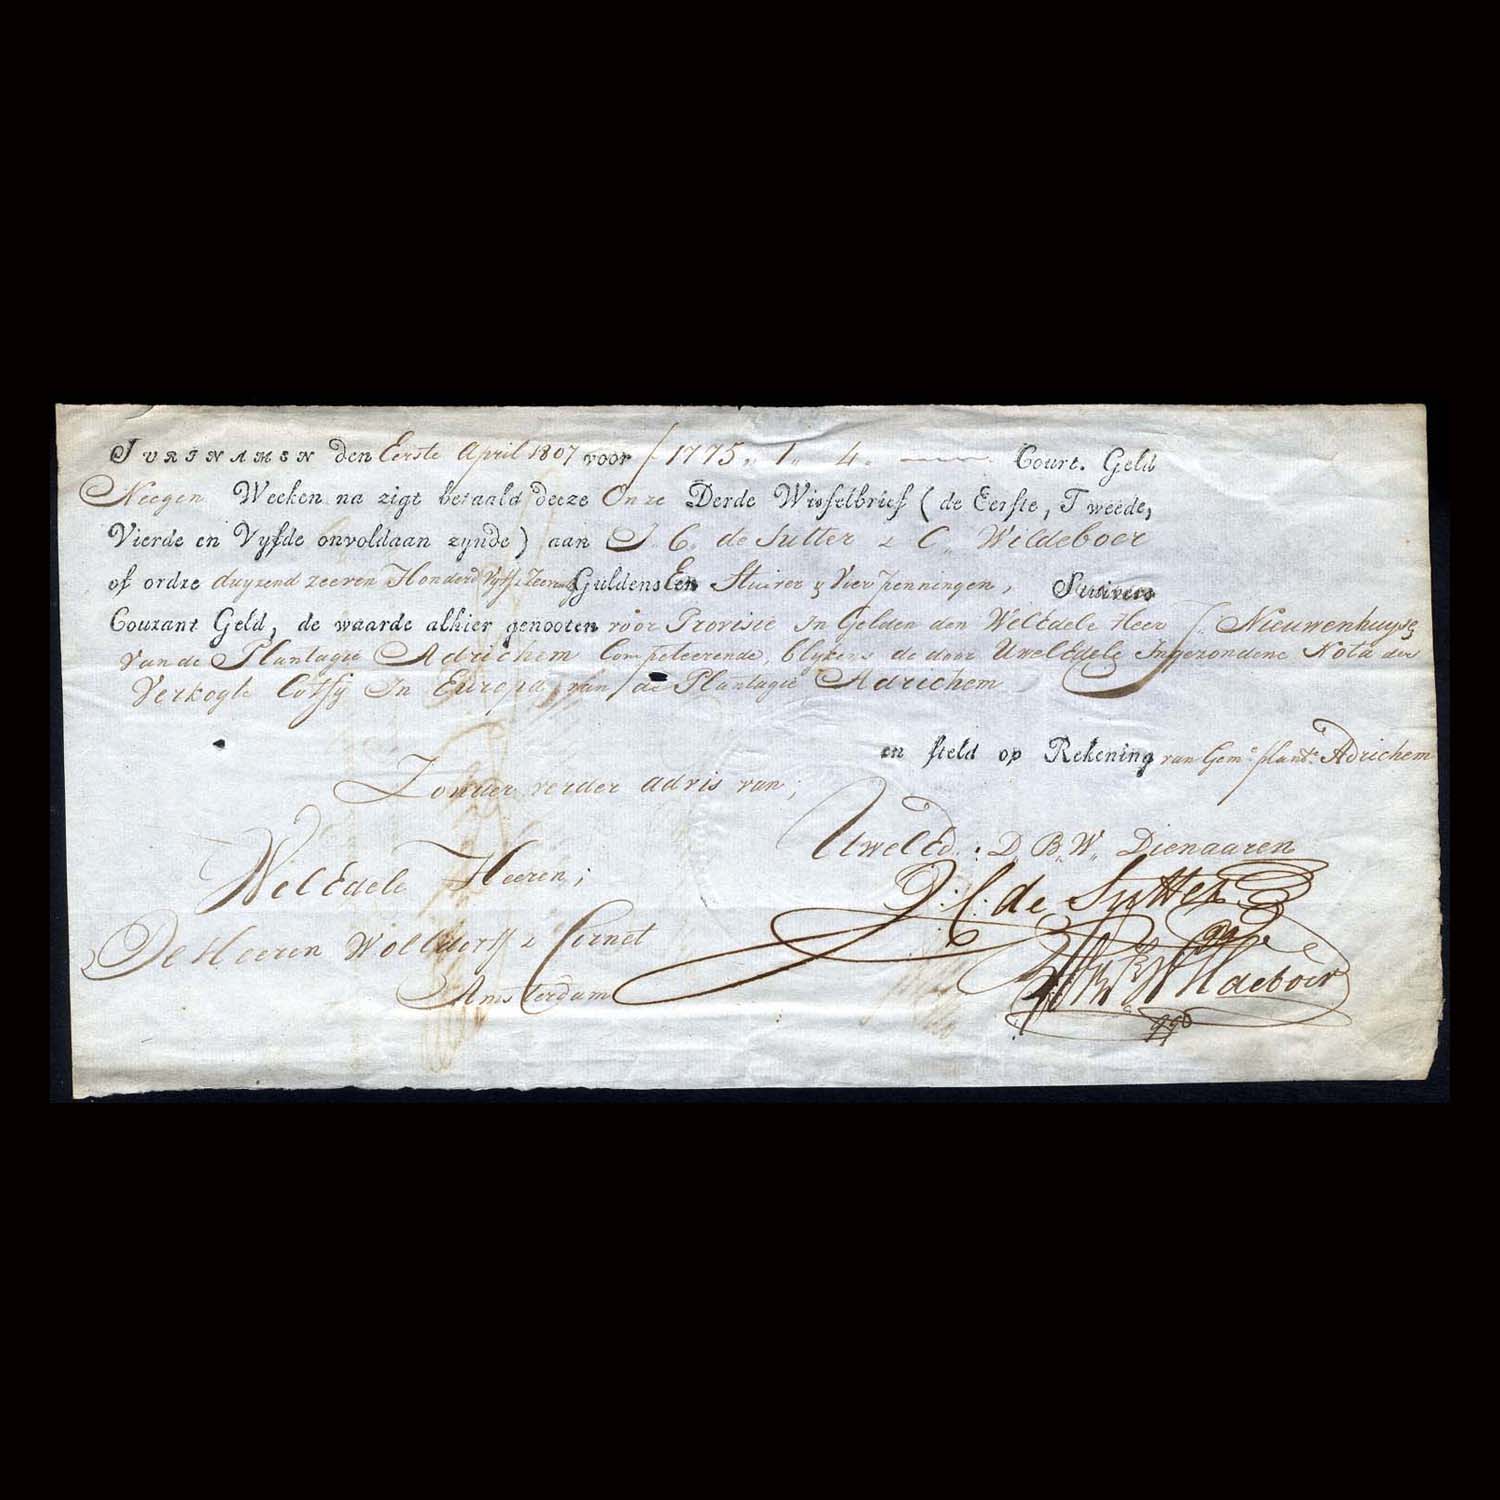 SURINAMEN den Eerste April 1807 voor ƒ 1775 „ 1 „ 4. Court. Geld
Neegen Weeken na zigt betaald deeze Onze Derde Wisselbrief (de Eerste, Tweede,
Vierde en Vyfde onvoldaan zynde) aan J. C. de Sutter & C. Wildeboer
of ordre duyzend zeeven Honderd Vyf & Zeeventig Guldens Een Stuiver & Vier penningen, Stuivers
Courant Geld, de waarde alhier genooten voor Provisie In Gelden den WelEdele Heer Nieuwenhuyse
van de Plantagie Adrichem Competeerende, blykens de door UwelEdele Ingezondene Nota der
Verkogte Coffy In Europa, van de Plantagie Adrichem
en steld op Rekening van Gem: plant: Adrichem
Zonder verder advis van;
UwelEd: D„ B„ W„ Dienaaren
WelEdele Heeren;
J: C: de Sutter
De Heeren Wolluerff & Cernet
Wildeboer
Amsterdam
qqo